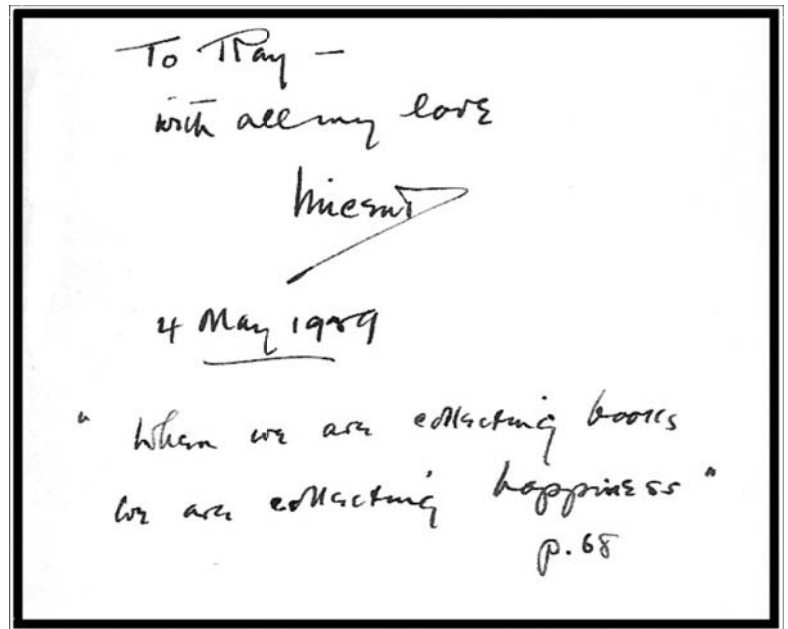 To Tray –
with all my love
Vincent
4 May 1989
"When we are collecting books
we are collecting happiness"
p. 68